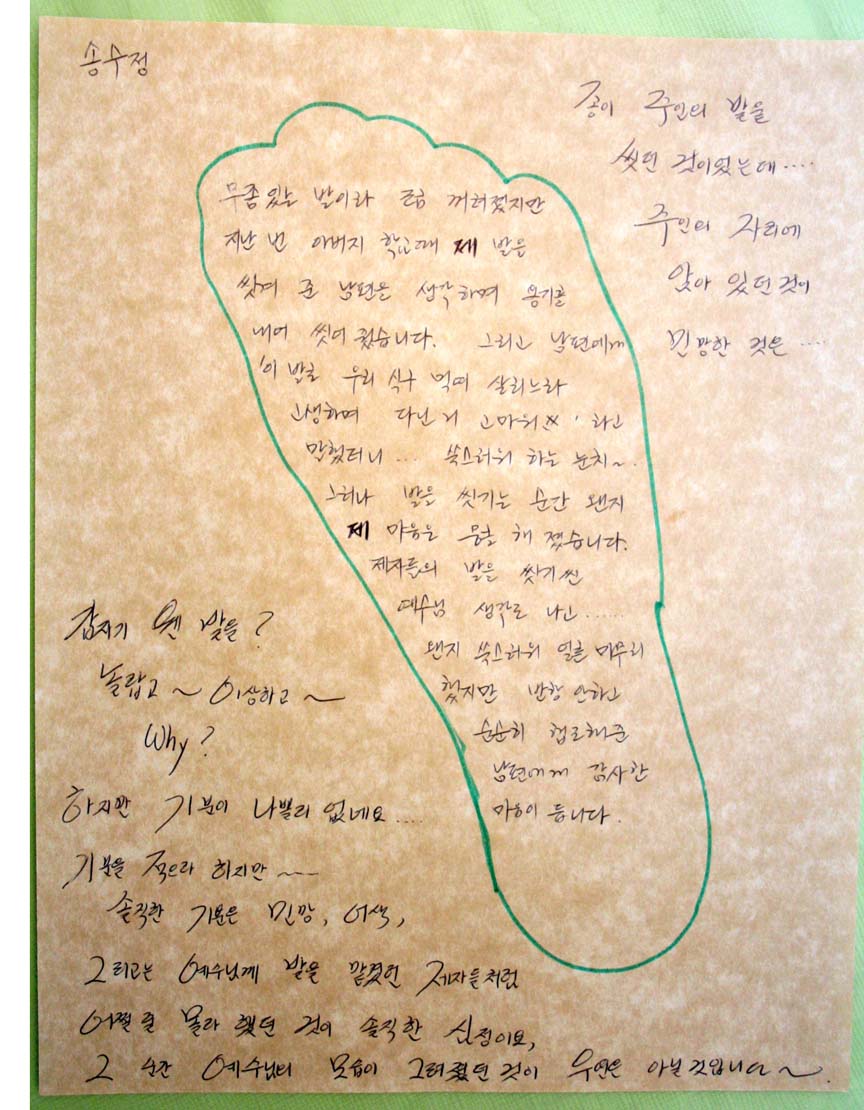 송수정
무좀있는 발이라 조금 꺼려졌지만
지난 번 아버지 학교때 제 발을
씻겨 준 남편을 생각하며 용기를
내어 씻어 줬습니다. 그리고 남편에게
'이 발로 우리 식구 먹여 살리느라
고생하며 다닌 거 고마워' 라고
말했더니... 쑥스러워 하는 눈치~.
그러나 발을 씻기는 순간 왠지
제 마음은 뭉클 해 졌습니다.
제자들의 발을 씻기신
예수님 생각도 나고......
왠지 쑥스러워 얼른 마무리
했지만 반항 안하고
순순히 협조해준
남편에게 감사한
마음이 듭니다.
종이 주인의 발을
씻던 것이었는데....
주인의 자리에
앉아 있던 것이
민망한 것은...
갑자기 웬 발을?
놀랍고~ 이상하고~
Why?
하지만 기분이 나쁠리 없네요....
기분을 적으라 하지만~~~
솔직한 기분은 민망, 어색,
그리고는 예수님께 발을 맡겼던 제자들처럼
어쩔 줄 몰라 했던 것이 솔직한 심정이요,
그 순간 예수님의 모습이 그려졌던 것이 우연은 아닐것입니다~.